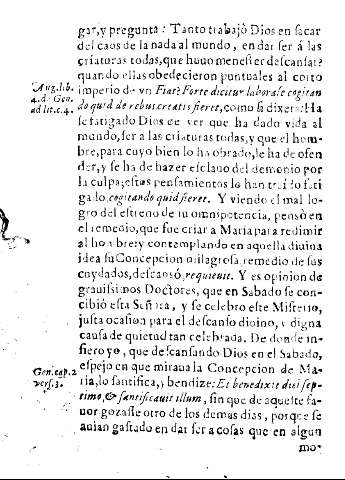 gar, y pregunta: Tanto trabajò Dios en sacar
del caos de la nada al mundo, en dar ser á las
criaturas todas, que huuo menester descansar?
quando ellas obedecieron puntuales al corto
Aug. lib.
4. d. Gen.
ad lit. c. 4.
imperio de vn Fiat? Forte dicitur laborasse cogitan
do quid de rebus creatis fieret, como si dixera: Ha
se fatigado Dios de ver que ha dado vida al
mundo, ser a las criaturas todas, y que el hom-
bre, para cuyo bien lo ha obrado, le ha de ofen
der, y se ha de hazer esclauo del demonio por
la culpa; estos pensamientos lo han traido fati
gado, cogitando quid fieret. Y viendo el mal lo-
gro del estreno de su omnipotencia, pensò en
el remedio, que fue criar a Maria para redimir
al hombre; y contemplando en aquella diuina
idea su Concepcion milagrosa, remedio de sus
cuydados, descansó, requieuit. Y es opinion de
grauissimos Doctores, que en Sabado se con-
cibió esta Señora, y se celebro este Misterio,
justa ocasion para el descanso diuino, y digna
causa de quietud tan celebrada. De donde in-
fiero yo, que descansando Dios en el Sabado,
espejo en que miraua la Concepcion de Ma-
Gen. cap. 2
vers. 3.
ria, lo santifica, y bendize: Et benedixit diei sep-
timo, & santificauit illum, sin que de aqueste fa-
uor gozasse otro de los demas dias, porque se
auian gastado en dar ser a cosas que en algun
mo-